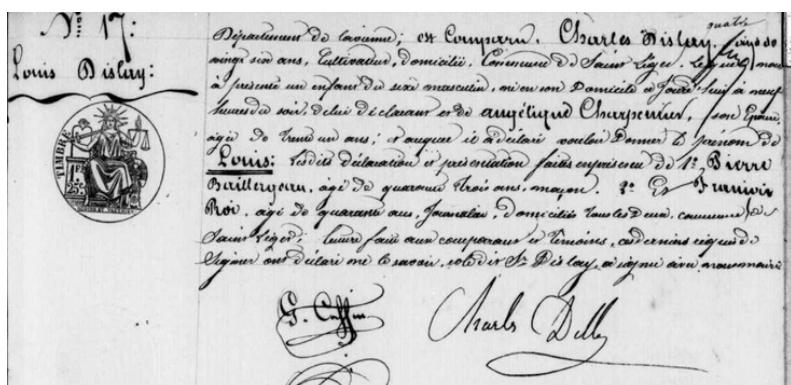 N° 17:
Louis Dislay:
TIMBRE
1F 25c
quatre
Département de la vienne; est Comparu, Charles Dislay, âgé de
vingt six ans, Cultivateur, domicilié, Commune de Saint Léger, Lequel nous
a présenté un enfant du sexe masculin, né en son Domicile à Jouare hier à neuf
heures du soir, de lui déclarant et de angélique Charpentier, son Epouse,
agée de Trente un ans; et auquel il a déclaré vouloir Donner le prénom de
Louis: Lesdites déclaration et présentation faites en présence de 1° Pierre
Baillergeau, âgé de quarante Trois ans, maçon. 2° Et
Roi, âgé de quarante ans, Journalier, domiciliés Tous les Deux, commune de
Saint Léger; lecture faite aux comparant et Témoins, ces derniers requis de
Signer ont déclaré ne le savoir, ledit Sr Dislay, a signé avec nous maire
Charles